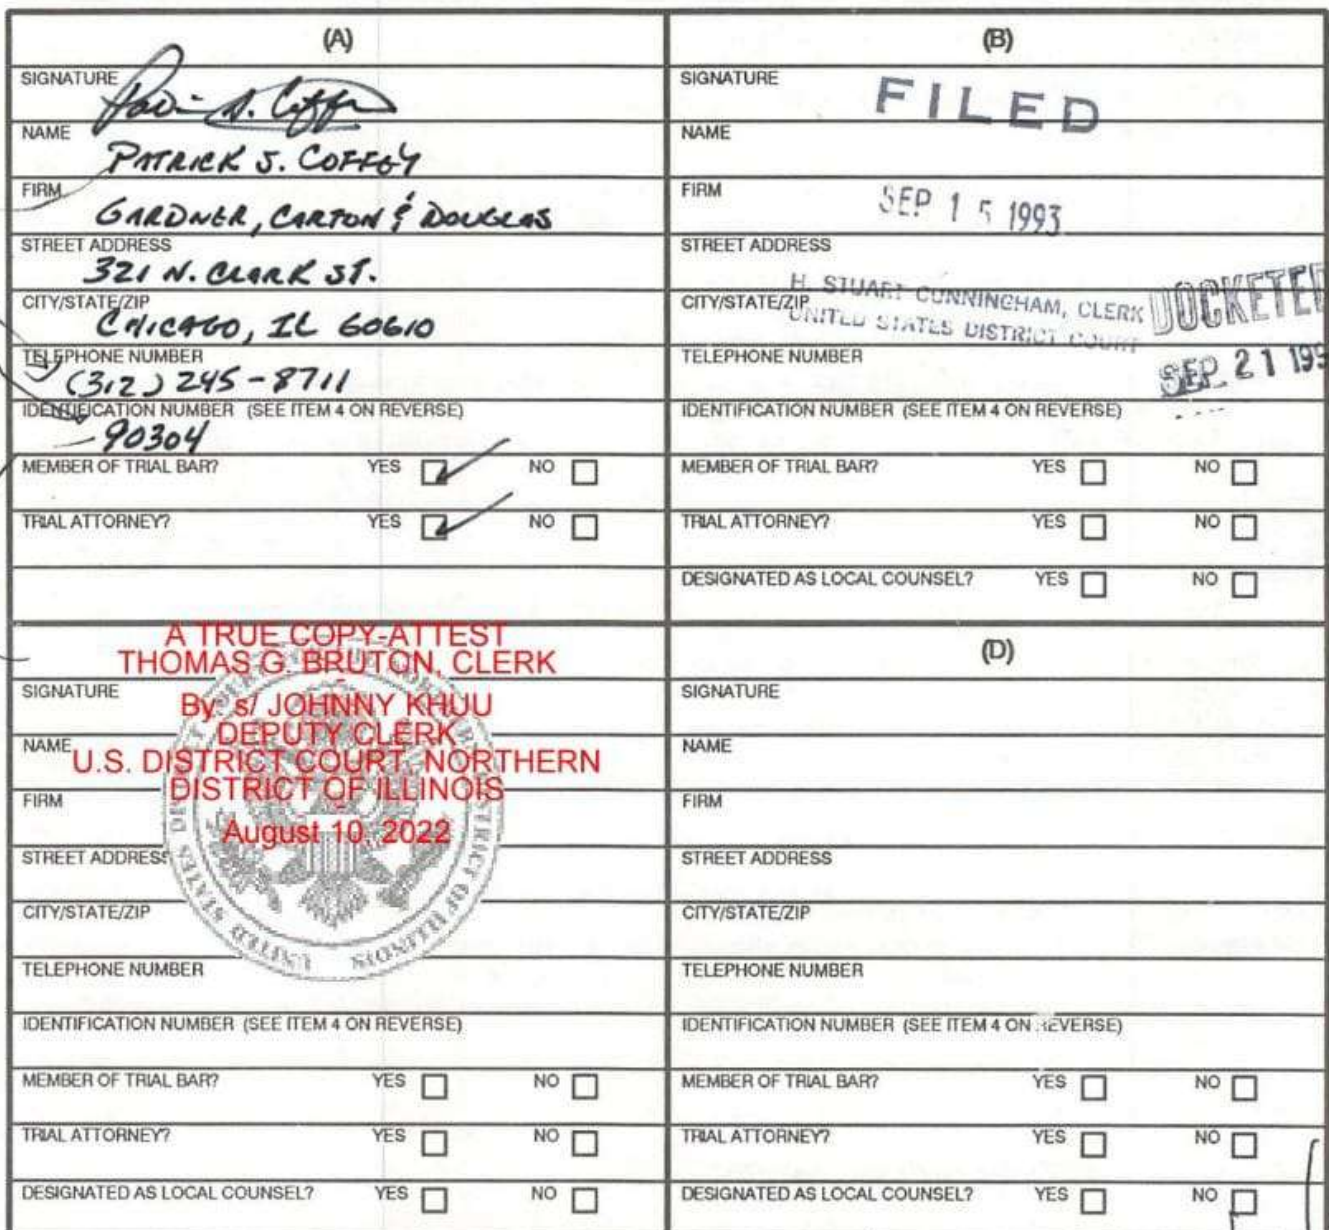 (A)
SIGNATURE
NAME
PATRICK J. COFFEY
FIRM
GARDNER, CARTON & DOUGLAS
STREET ADDRESS
321 N. CLARK ST.
CITY/STATE/ZIP
CHICAGO, IL 60610
TELEPHONE NUMBER
(312) 245-8711
IDENTIFICATION NUMBER (SEE ITEM 4 ON REVERSE)
90304
MEMBER OF TRIAL BAR? YES NO
TRIAL ATTORNEY? YES NO
(B)
SIGNATURE
FILED
NAME
FIRM
SEP 15 1993
STREET ADDRESS
H. STUART CUNNINGHAM, CLERK
CITY/STATE/ZIP
UNITED STATES DISTRICT COURT
DOCKETED
TELEPHONE NUMBER
SEP 21 199
IDENTIFICATION NUMBER (SEE ITEM 4 ON REVERSE)
MEMBER OF TRIAL BAR? YES NO
TRIAL ATTORNEY? YES NO
DESIGNATED AS LOCAL COUNSEL? YES NO
A TRUE COPY-ATTEST
THOMAS G. BRUTON, CLERK
By: s/ JOHNNY KHUU
DEPUTY CLERK
U.S. DISTRICT COURT, NORTHERN
DISTRICT OF ILLINOIS
August 10, 2022
UNITED STATES DISTRICT COURT FOR THE NORTHERN DISTRICT OF ILLINOIS
SIGNATURE
NAME
FIRM
STREET ADDRESS
CITY/STATE/ZIP
TELEPHONE NUMBER
IDENTIFICATION NUMBER (SEE ITEM 4 ON REVERSE)
MEMBER OF TRIAL BAR? YES NO
TRIAL ATTORNEY? YES NO
DESIGNATED AS LOCAL COUNSEL? YES NO
(D)
SIGNATURE
NAME
FIRM
STREET ADDRESS
CITY/STATE/ZIP
TELEPHONE NUMBER
IDENTIFICATION NUMBER (SEE ITEM 4 ON REVERSE)
MEMBER OF TRIAL BAR? YES NO
TRIAL ATTORNEY? YES NO
DESIGNATED AS LOCAL COUNSEL? YES NO